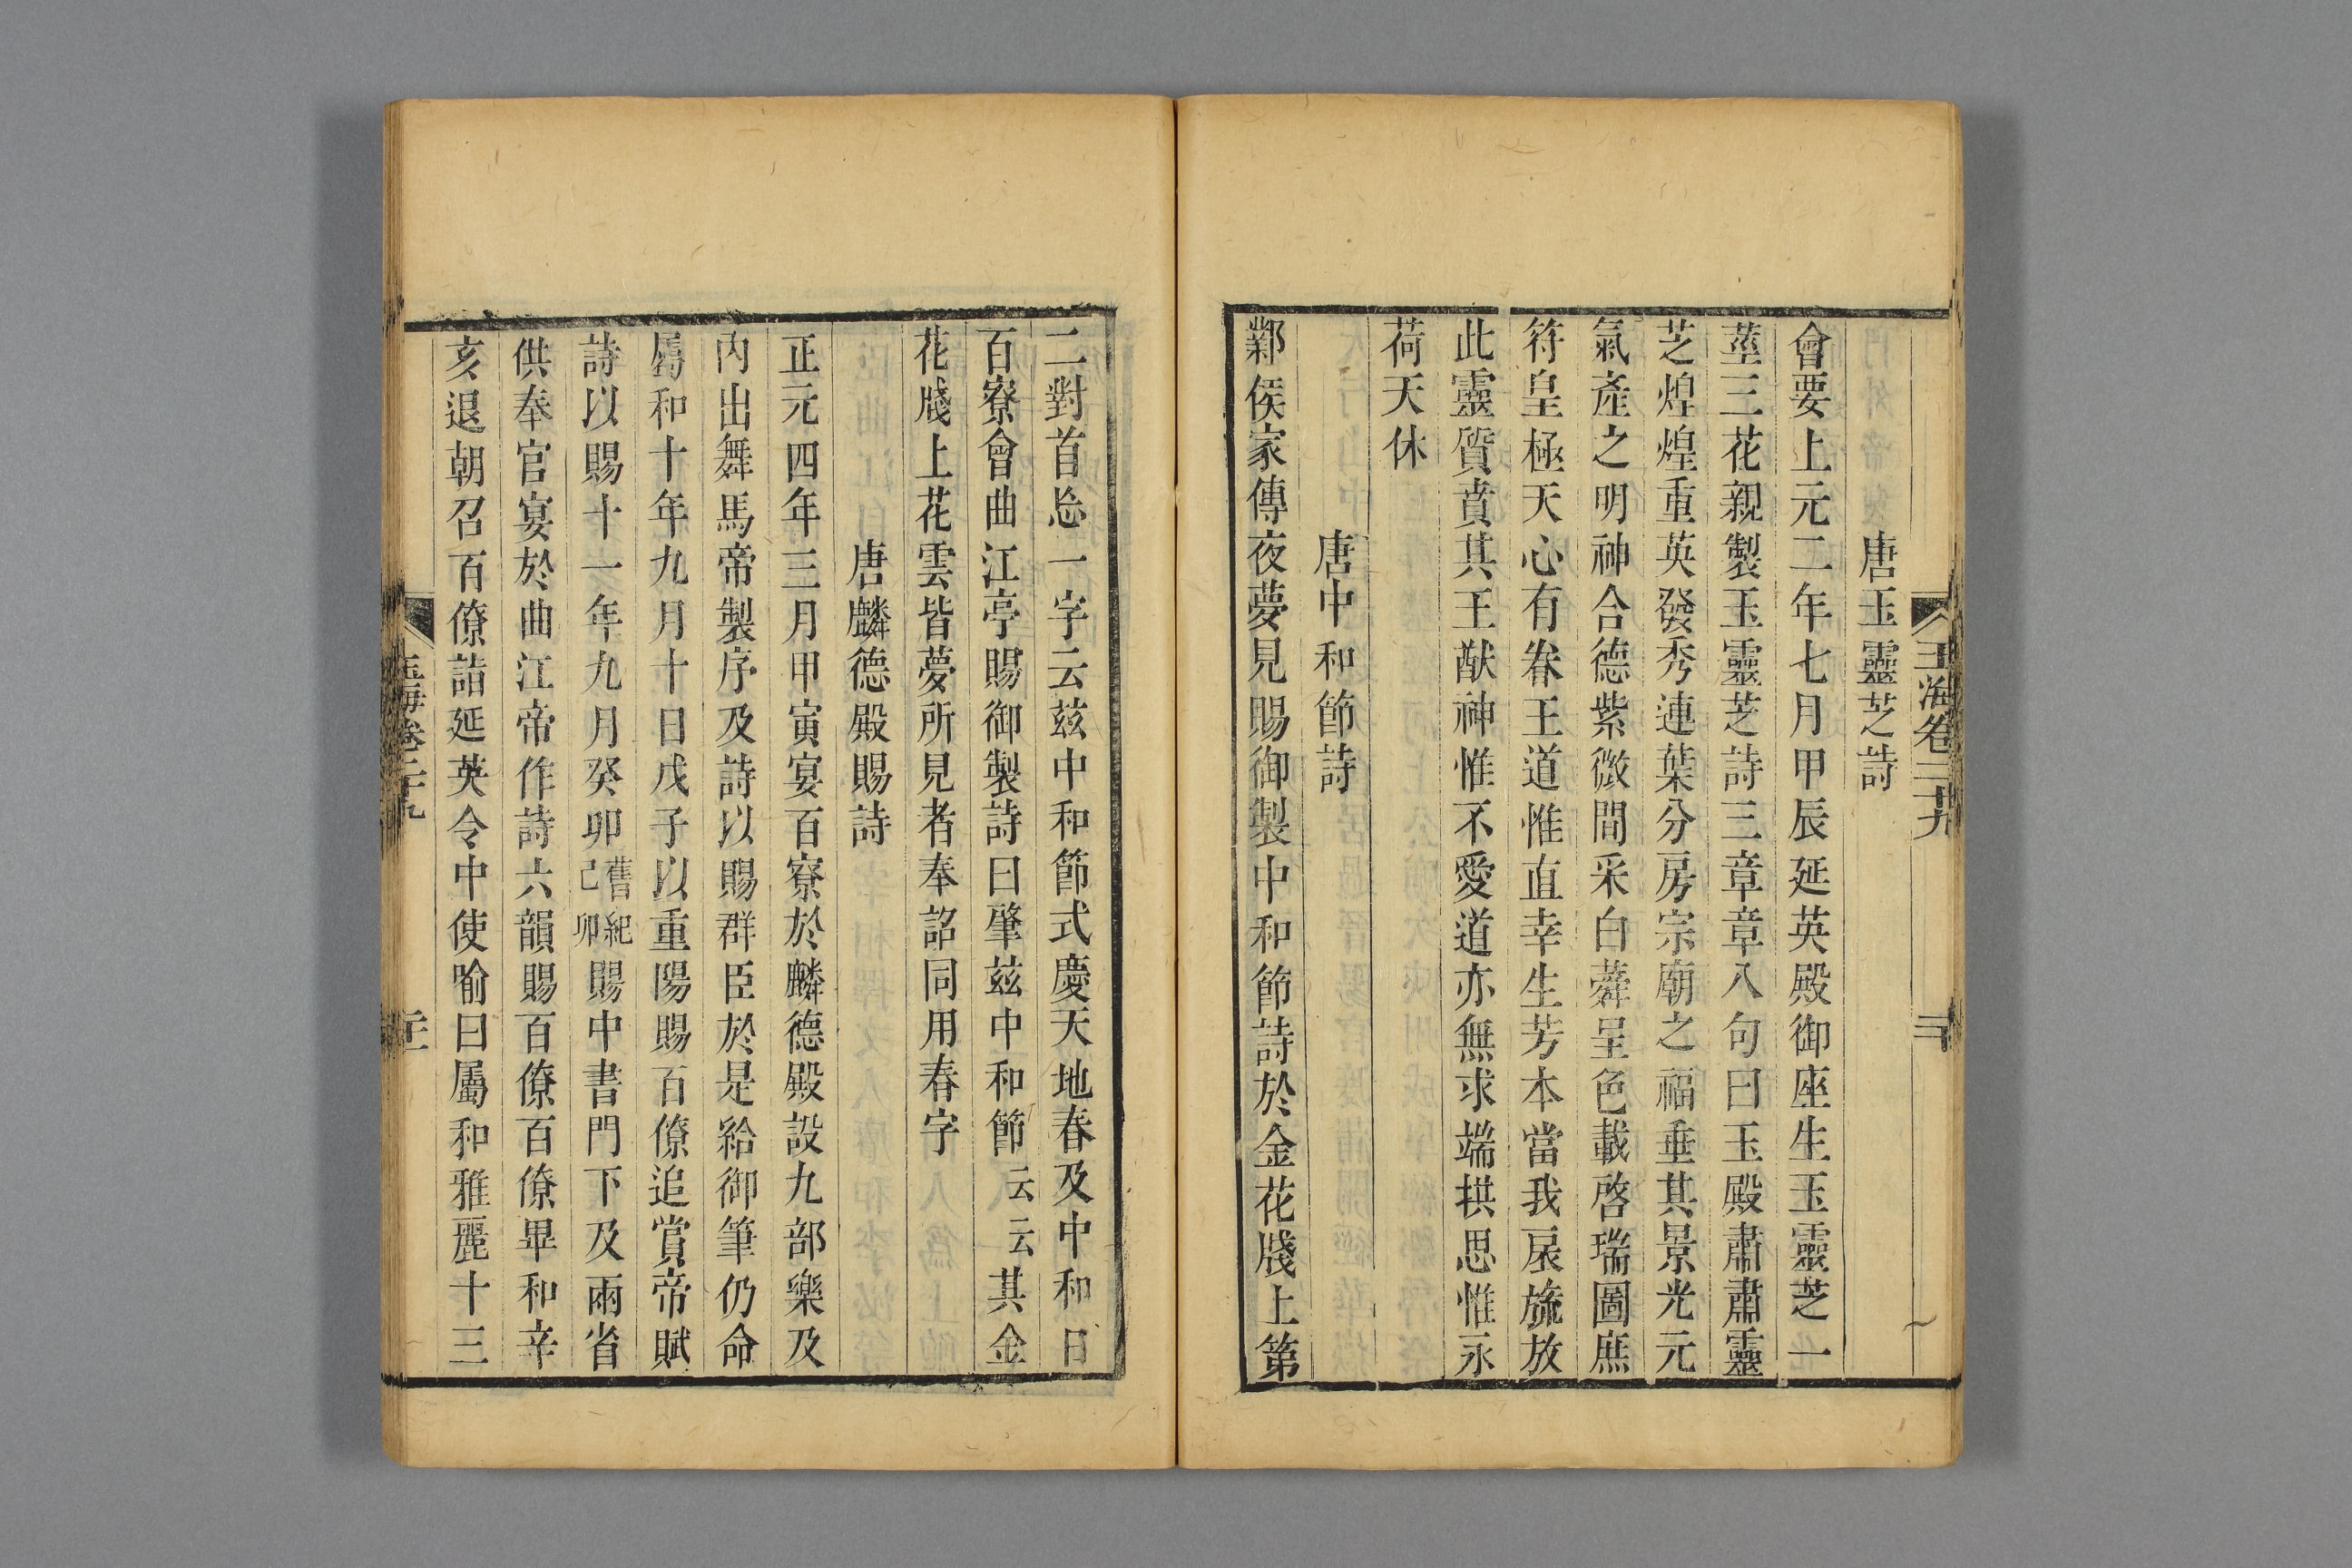 玉海卷二十九
唐玉靈芝詩
會要上元二年七月甲辰延英殿御座生玉靈芝一
莖三花親製玉靈芝詩三章章八句曰玉殿肅肅靈
芝煌煌重英發秀連葉分房宗廟之福垂其景光元
氣產之明神合德紫微間采白蕣呈色載啓瑞圖庶
符皇極天心有眷王道惟直幸生芳本當我扆旒放
此靈質賁其王猷神惟不愛道亦無求端拱思惟永
荷天休
唐中和節詩
鄴侯家傳夜夢見賜御製中和節詩於金花牋上第
二對首忩一字云兹中和節式慶天地春及中和日
百寮會曲江亭賜御製詩曰肇兹中和節云云其金
花牋上花雲皆夢所見者奉詔同用春字
唐麟德殿賜詩
正元四年三月甲寅宴百寮於麟德殿設九部樂及
內出舞馬帝製序及詩以賜群臣於是給御筆仍命
屬和十年九月十日戊子以重陽賜百僚追賞帝賦
詩以賜十一年九月癸卯舊紀己卯賜中書門下及兩省
供奉官宴於曲江帝作詩六韻賜百僚百僚畢和辛
亥退朝召百僚詣延英令中使喻曰屬和雅麗十三
玉海卷二十九